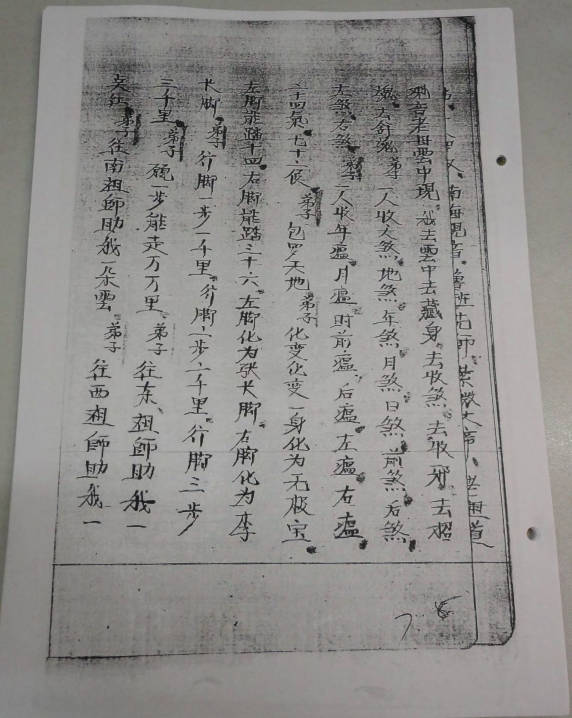 南海观音、鲁班先师、紫微大帝、
观音老母雲中現、我去雲中去藏身、去收煞、去收邪、去招
魂、去舒冤、弟子一人收天煞、地煞、年煞、月煞、日煞、前煞、后煞、
左煞、右煞、弟子一人收年瘟、月瘟、时前瘟、后瘟、左瘟、右瘟、
二十四氣、七十二侯、弟子包罗天地、弟子化变化变一身化为无极宝、
左脚能踏十四、右脚能踏三十六、左脚化为张长脚、右脚化为李
长脚、弟子行脚一步一千里、行脚二步二千里、行脚三步
三千里、弟子愿一步能走万万里、弟子往东、祖師助我一
弟子往南祖師助我一朵雲、弟子往西祖師助我一